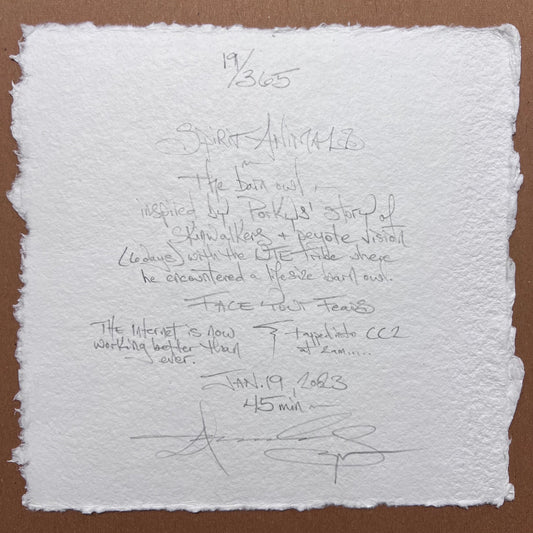 19/365
SPIRIT ANIMALS
~
The barn owl ~
inspired by Porkys' story of
skinwalkers + peyote vision
(6 days) with the UTE Tribe where
he encountered a lifesize barn owl.
FACE YOUR FEARS
THE Internet is now
working better than
ever.
+ tapped into CC2
at 2am....
JAN. 19, 2023
45 min ~